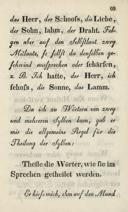 69
der Herr, der Schoſs, die Liebe,
der Sohn, lahm, der Draht. Fol-
gen aber auf den Selbſtlaut zwey
Mitlaute, ſo ſollſt du denſelben ge-
ſchwind ausſprechen oder ſchärfen,
z. B. Ich hatte, der Herr, ich
ſchoſs, die Sonne, das Lamm.
Da ich zu Wörtern von zwey
und mehreren Sylben kam, gab er
mir die allgemeine Regel für die
Theilung der Sylben:
Theile die Wörter, wie ſie im
Sprechen getheilet werden.
Er hieſs mich, ihm auf den Mund